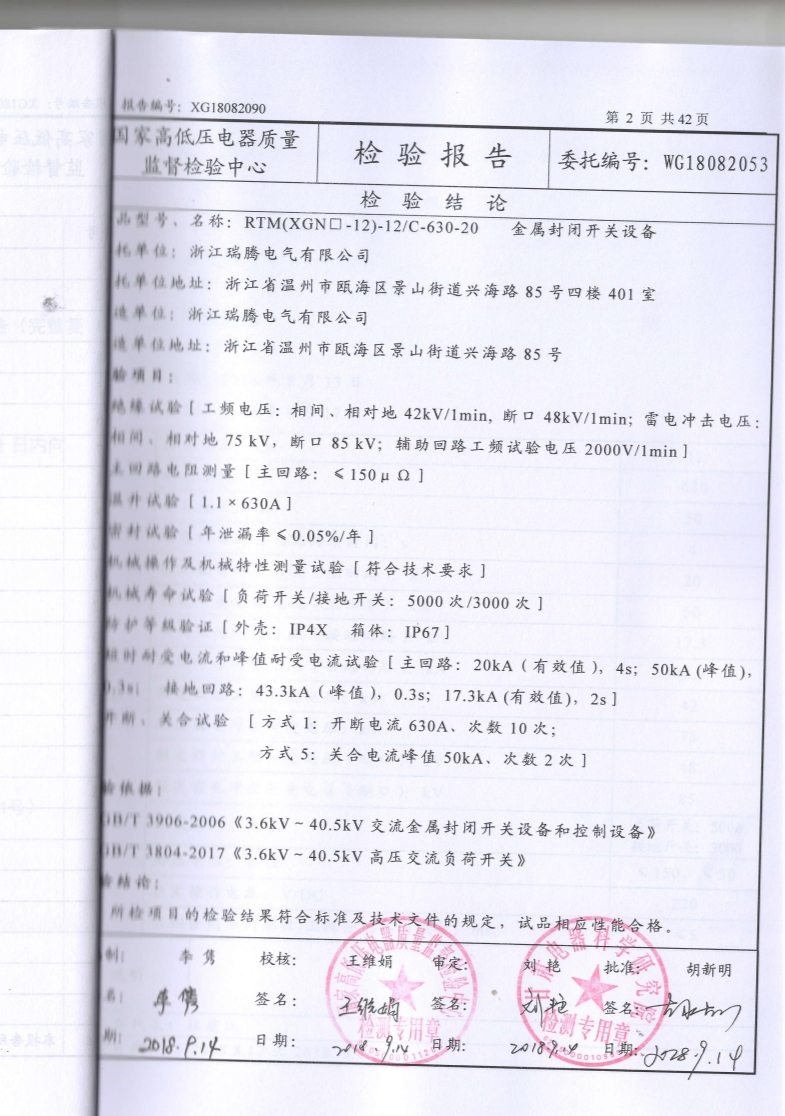 报告编号：XG18082090
第 2 页 共 42 页
国家高低压电器质量
监督检验中心
检 验 报 告
委托编号：WG18082053
检 验 结 论
品型号、名称：RTM(XGN□-12)-12/C-630-20 金属封闭开关设备
托单位：浙江瑞腾电气有限公司
托单位地址：浙江省温州市瓯海区景山街道兴海路 85 号四楼 401 室
造单位：浙江瑞腾电气有限公司
造单位地址：浙江省温州市瓯海区景山街道兴海路 85 号
验项目：
绝缘试验［工频电压：相间、相对地 42kV/1min, 断口 48kV/1min；雷电冲击电压：
相间、相对地 75 kV，断口 85 kV；辅助回路工频试验电压 2000V/1min］
主回路电阻测量［主回路：≤150μΩ］
温升试验［1.1×630A］
密封试验［年泄漏率≤0.05%/年］
机械操作及机械特性测量试验［符合技术要求］
机械寿命试验［负荷开关/接地开关：5000 次/3000 次］
防护等级验证［外壳：IP4X 箱体：IP67］
短时耐受电流和峰值耐受电流试验［主回路：20kA（有效值），4s；50kA (峰值)，
0.3s； 接地回路：43.3kA（峰值），0.3s；17.3kA (有效值)，2s］
开断、关合试验 ［方式 1：开断电流 630A、次数 10 次；
方式 5：关合电流峰值 50kA、次数 2 次］
验依据：
GB/T 3906-2006《3.6kV～40.5kV 交流金属封闭开关设备和控制设备》
GB/T 3804-2017《3.6kV～40.5kV 高压交流负荷开关》
验结论：
所检项目的检验结果符合标准及技术文件的规定，试品相应性能合格。
制： 李 隽 校核： 王维娟 审定： 刘 艳 批准： 胡新明
名： 李隽 签名： 王维娟 签名： 刘艳 签名：
期： 2018.9.14 日期： 2018.9.14 日期： 2018.9.14 日期： 2018.9.14
检测专用章
电器科学研究院
检测专用章